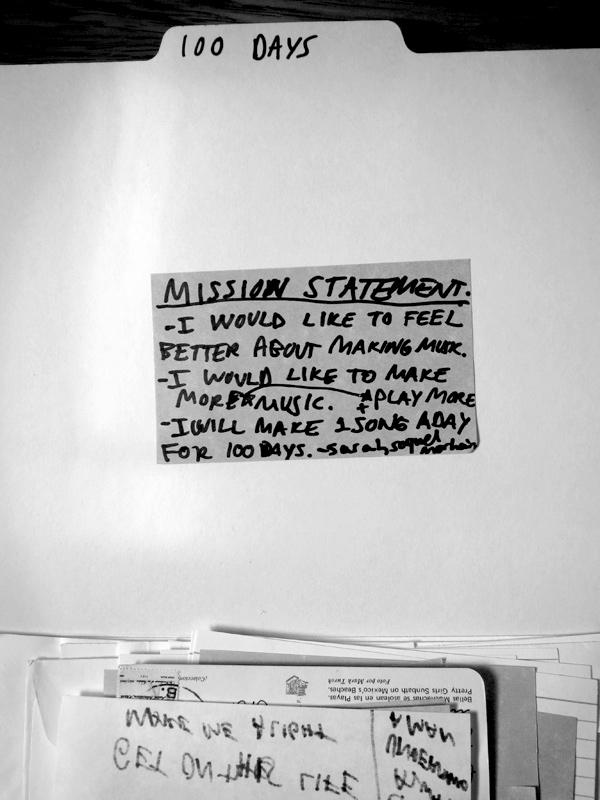 100 DAYS
MISSION STATEMENT.
-I WOULD LIKE TO FEEL
BETTER ABOUT MAKING MUSIC.
-I WOULD LIKE TO MAKE
MORE MUSIC. + PLAY MORE
-I WILL MAKE 1 SONG A DAY
FOR 100 DAYS. -sarah, soquel
morhaim
Foto por Mark Turok
Bellas Muchachas se asolean en las Playas.
Pretty Girls Sunbath on Mexico's Beaches.
MAKE ME A LIGHT
GET ON THE LIFE